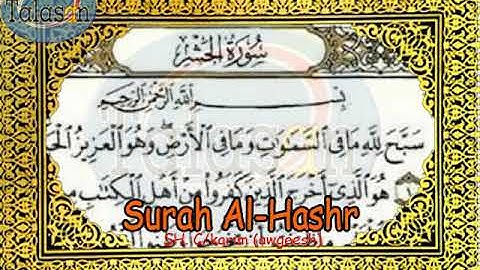 Talasan
سُورَةُ الحَشْرِ
بِسْمِ اللَّهِ الرَّحْمَٰنِ الرَّحِيمِ
سَبَّحَ لِلَّهِ مَا فِي السَّمَٰوَٰتِ وَمَا فِي الْأَرْضِ وَهُوَ الْعَزِيزُ الْحَ
١ هُوَ الَّذِي أَخْرَجَ الَّذِينَ كَفَرُوا مِنْ أَهْلِ الْكِتَٰبِ مِ
Surah Al-Hashr
SH. C/karim (awgeesh)